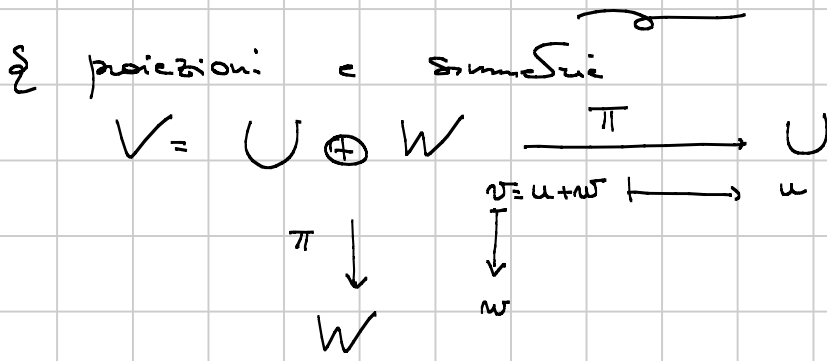 § proiezioni e simmetrie
V = U ⊕ W ⟶ U
π
v = u + w ⟼ u
π ↓ ↓
w
W